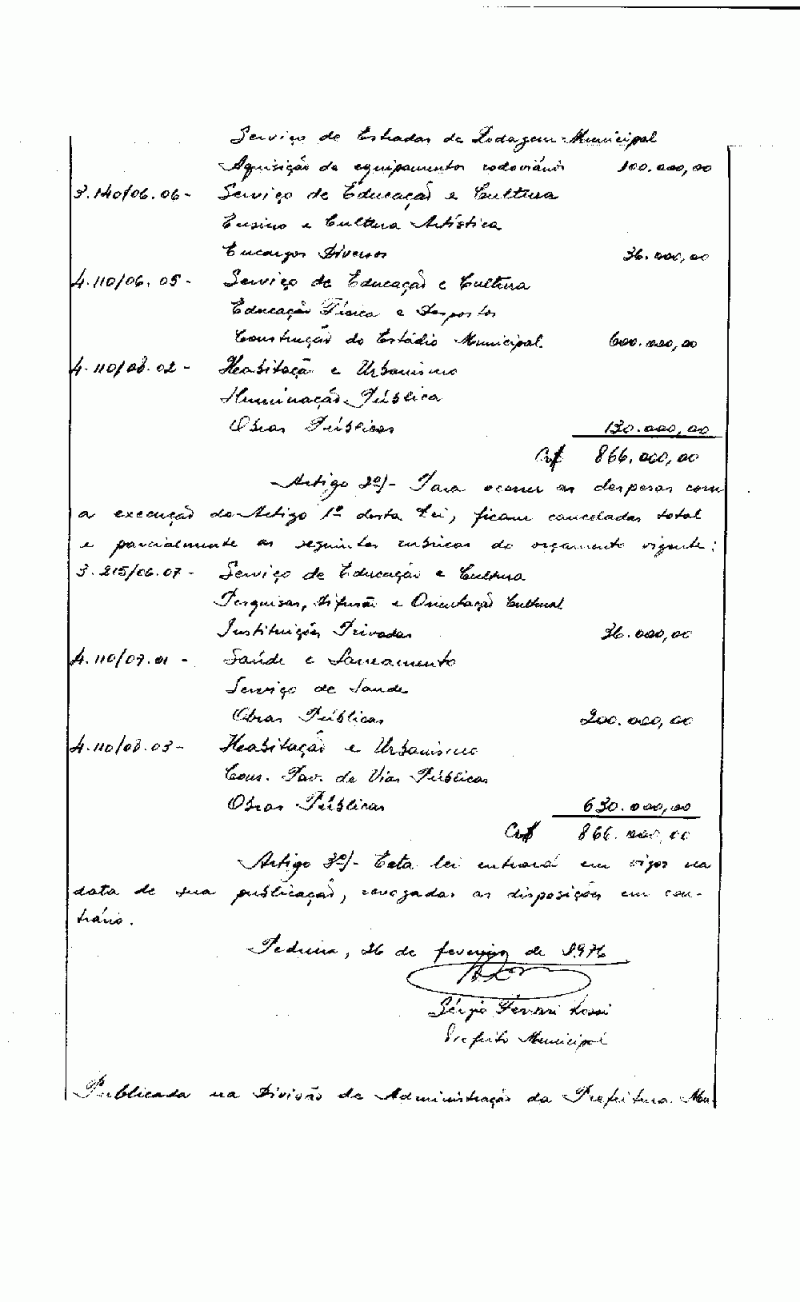 Serviço de Estradas de Rodagem Municipal
Aquisição de equipamentos rodoviários 100.000,00
3.140/06.06 - Serviço de Educação e Cultura
Ensino e Cultura Artística
Encargos Diversos 36.000,00
4.110/06.05 - Serviço de Educação e Cultura
Educação Física e Desportos
Construção do Estádio Municipal 600.000,00
4.110/08.02 - Habitação e Urbanismo
Iluminação Pública
Obras Públicas 130.000,00
Cr$ 866.000,00
Artigo 2º/- Para ocorrer as despesas com
a execução do Artigo 1º desta Lei, ficam canceladas total
e parcialmente as seguintes rubricas do orçamento vigente:
3.215/06.07 - Serviço de Educação e Cultura
Pesquisas, Difusão e Orientação Cultural
Instituições Privadas 36.000,00
4.110/07.01 - Saúde e Saneamento
Serviço de Saude
Obras Públicas 200.000,00
4.110/08.03 - Habitação e Urbanismo
Cons. Pav. de Vias Públicas
Obras Públicas 630.000,00
Cr$ 866.000,00
Artigo 3º/- Esta lei entrará em vigor na
data de sua publicação, revogadas as disposições em con-
trário.
Pedreira, 26 de fevereiro de 1976
Sérgio Ferrari Rossi
Prefeito Municipal
Publicada na Divisão de Administração da Prefeitura Mu-